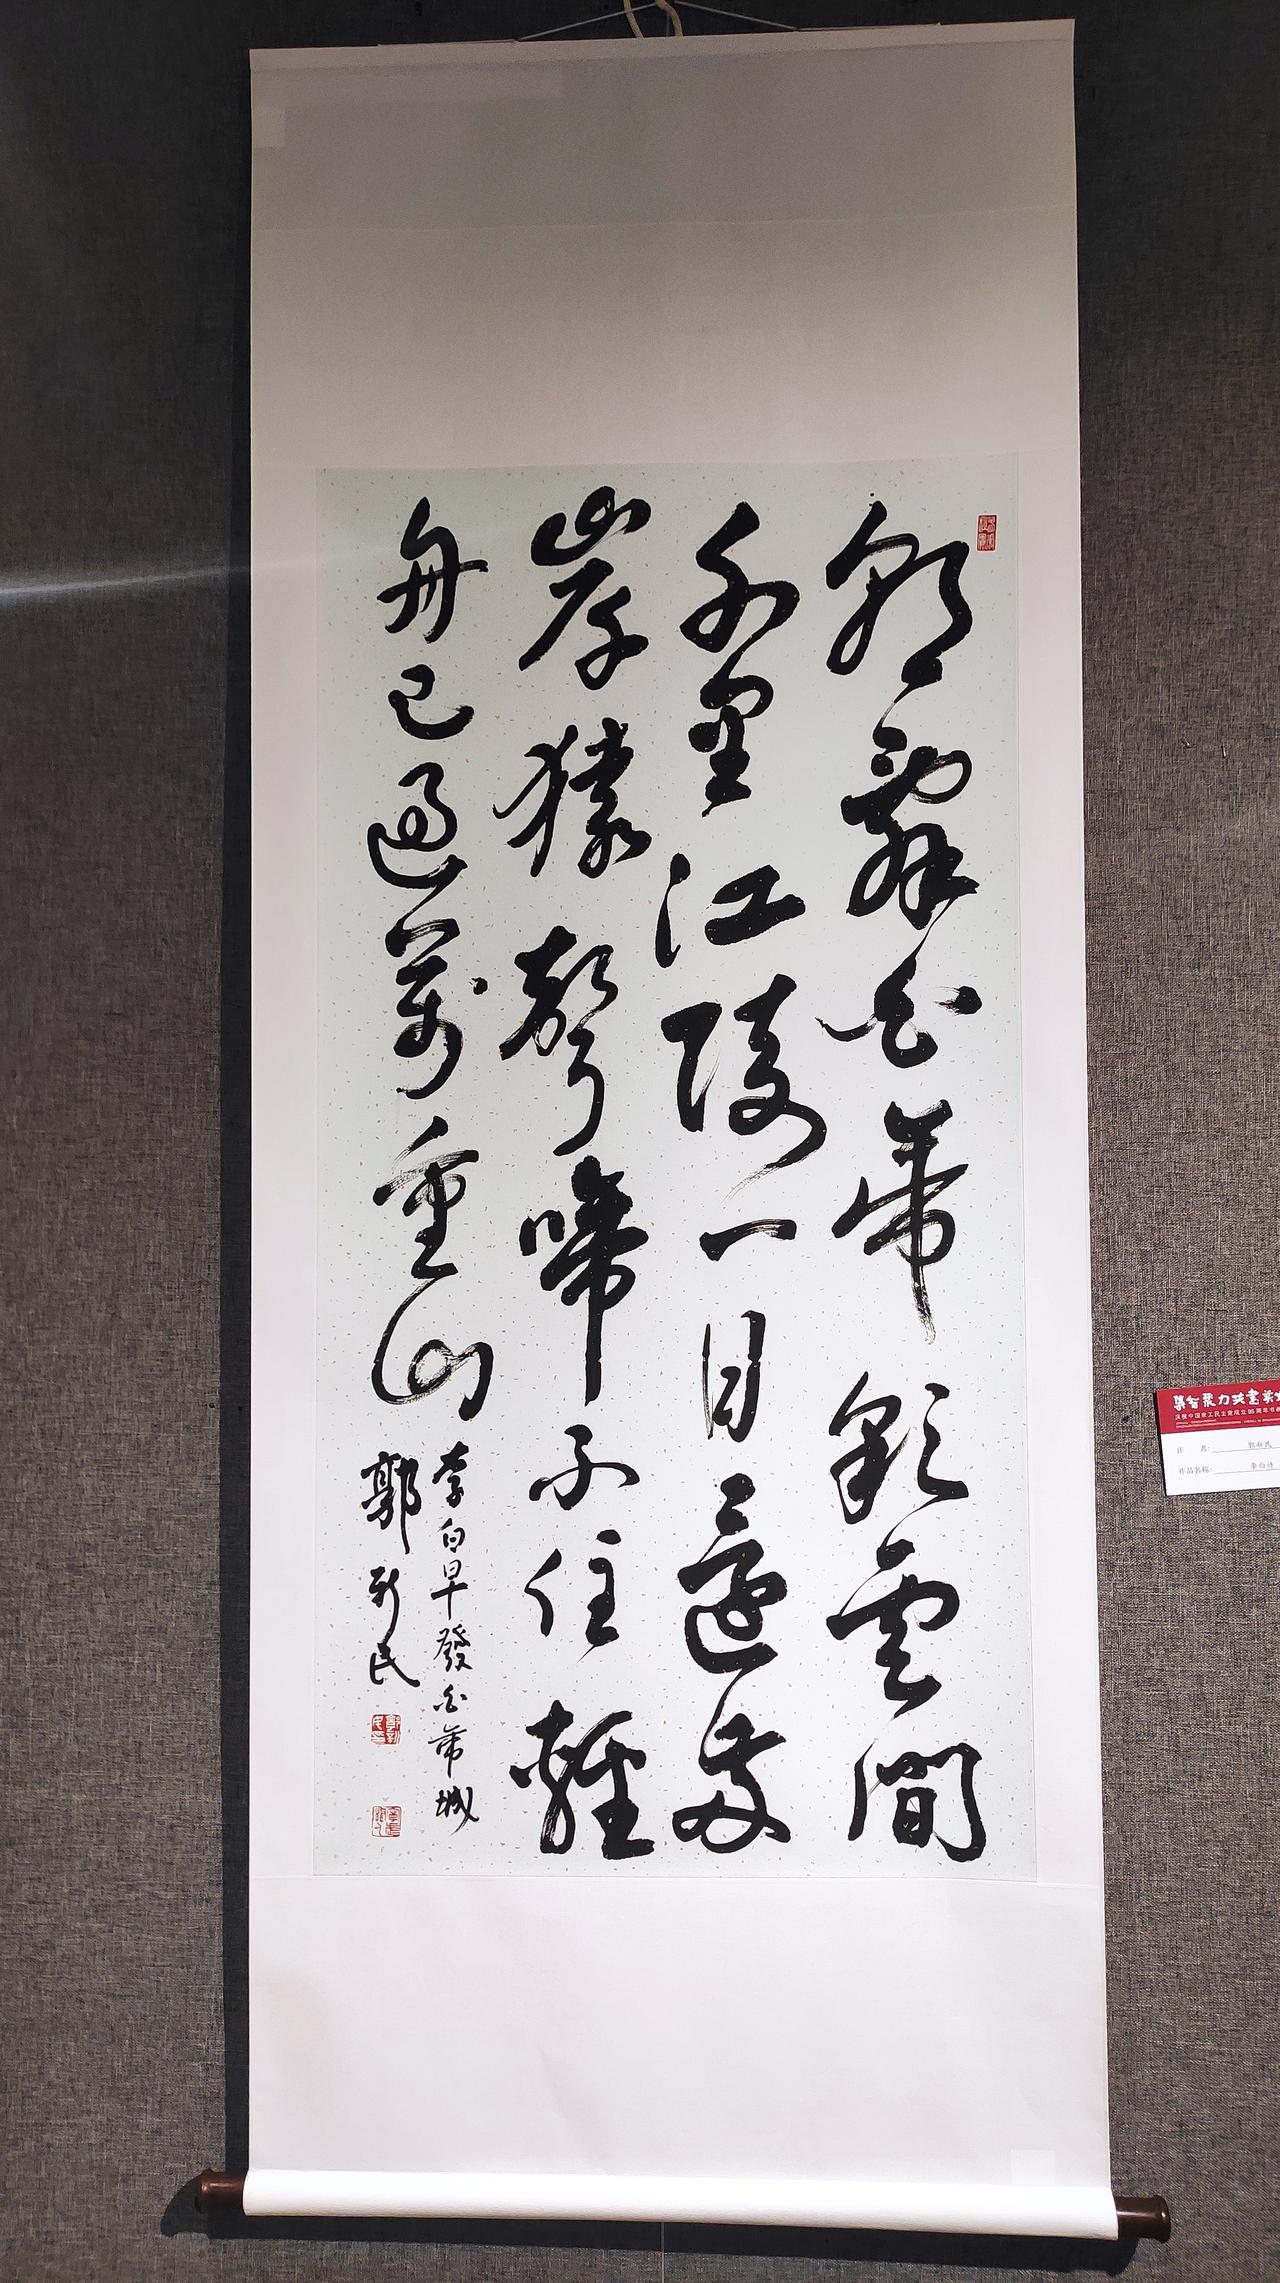 朝辭白帝彩雲間
千里江陵一日還兩
岸猿聲啼不住輕
舟已過萬重山
李白早發白帝城
郭新民
集智聚力共畫美
庆祝中国农工民主党成立95周年书画
作 者: 郭新民
作品名称: 李白诗